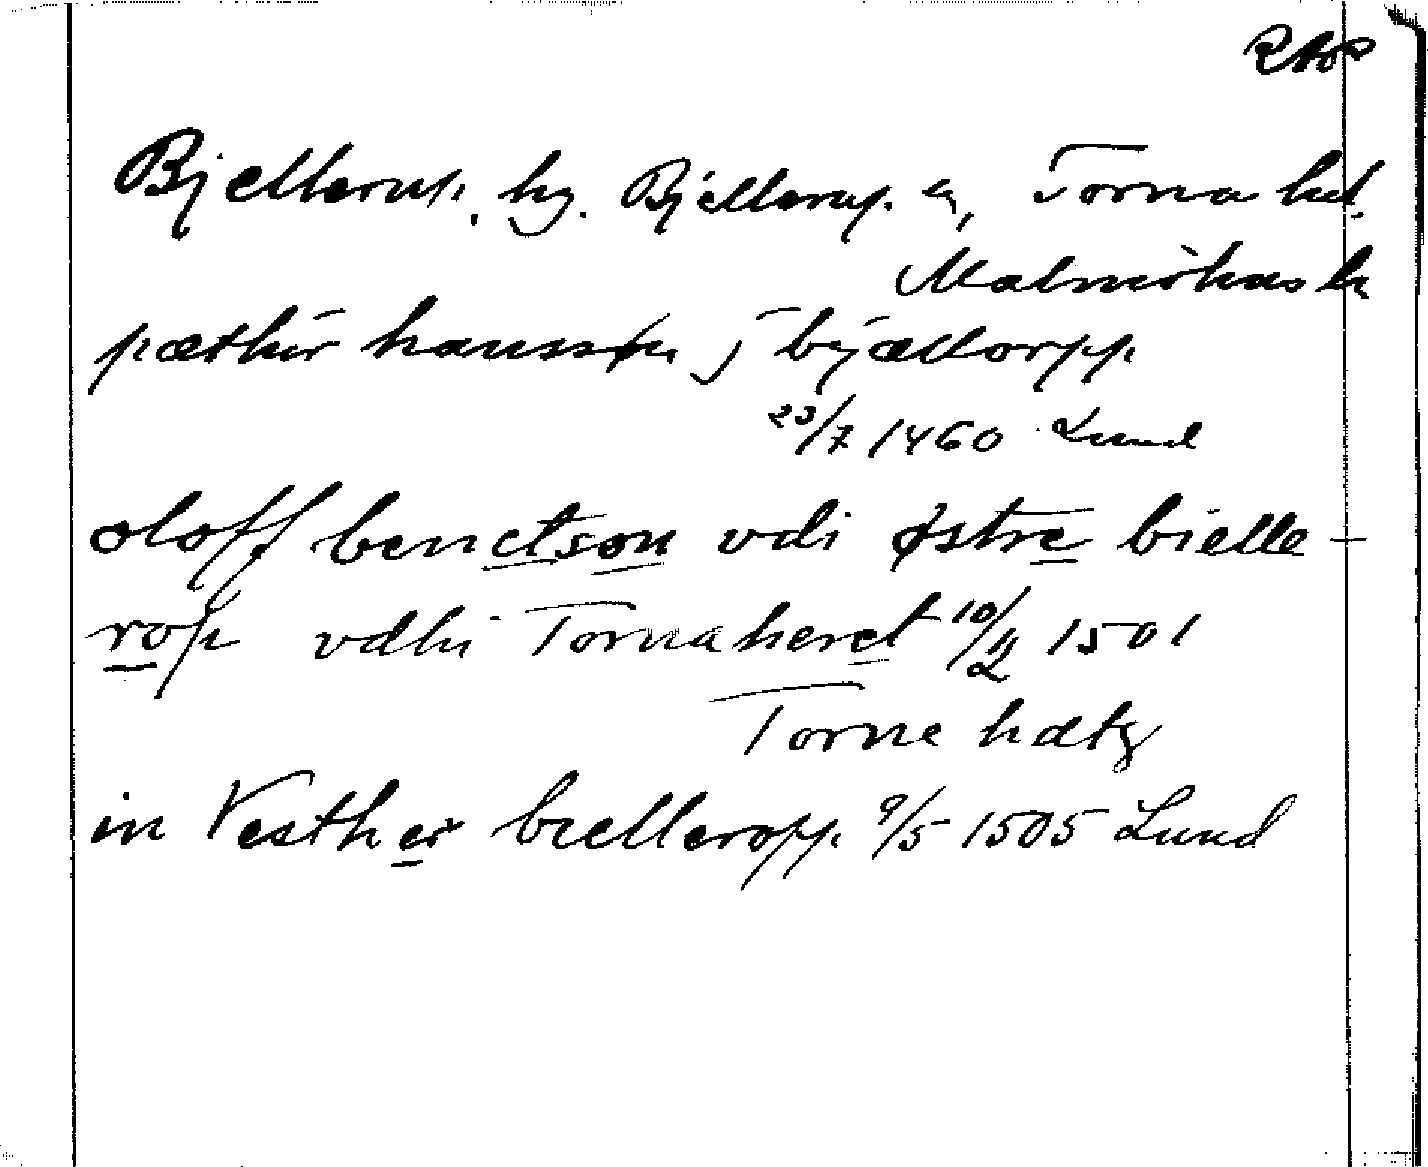 RAop
Bjellerup, by. Bjellerup sn, Torna hd.
Malmöhus ln
pæthir hanssøn j byællorpp
23/7 1460 Lund
oloff benctson vdi østre bielle-
rop vdhi Tornaheret 10/2 1501
Torne hætz
in Vesther bielleropp 9/5 1505 Lund